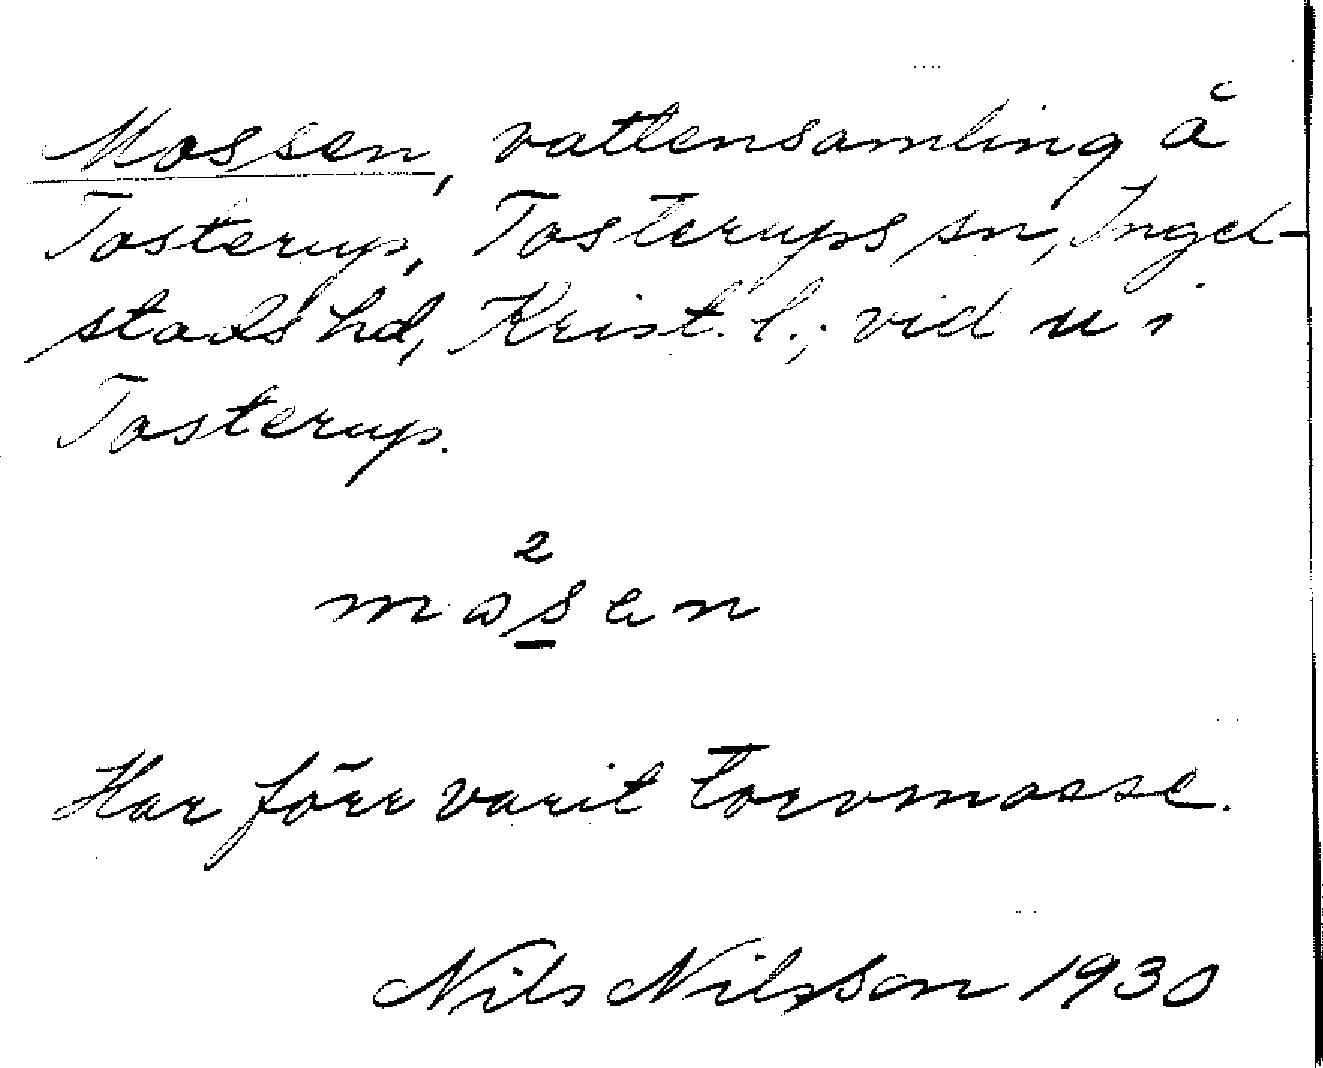 Mossen, vattensamling å
Tosterup, Tosterups sn, Ingel-
stads hd, Krist. l.; vid u i
Tosterup.
2
mosen
Har förr varit torvmosse.
Nils Nilsson 1930